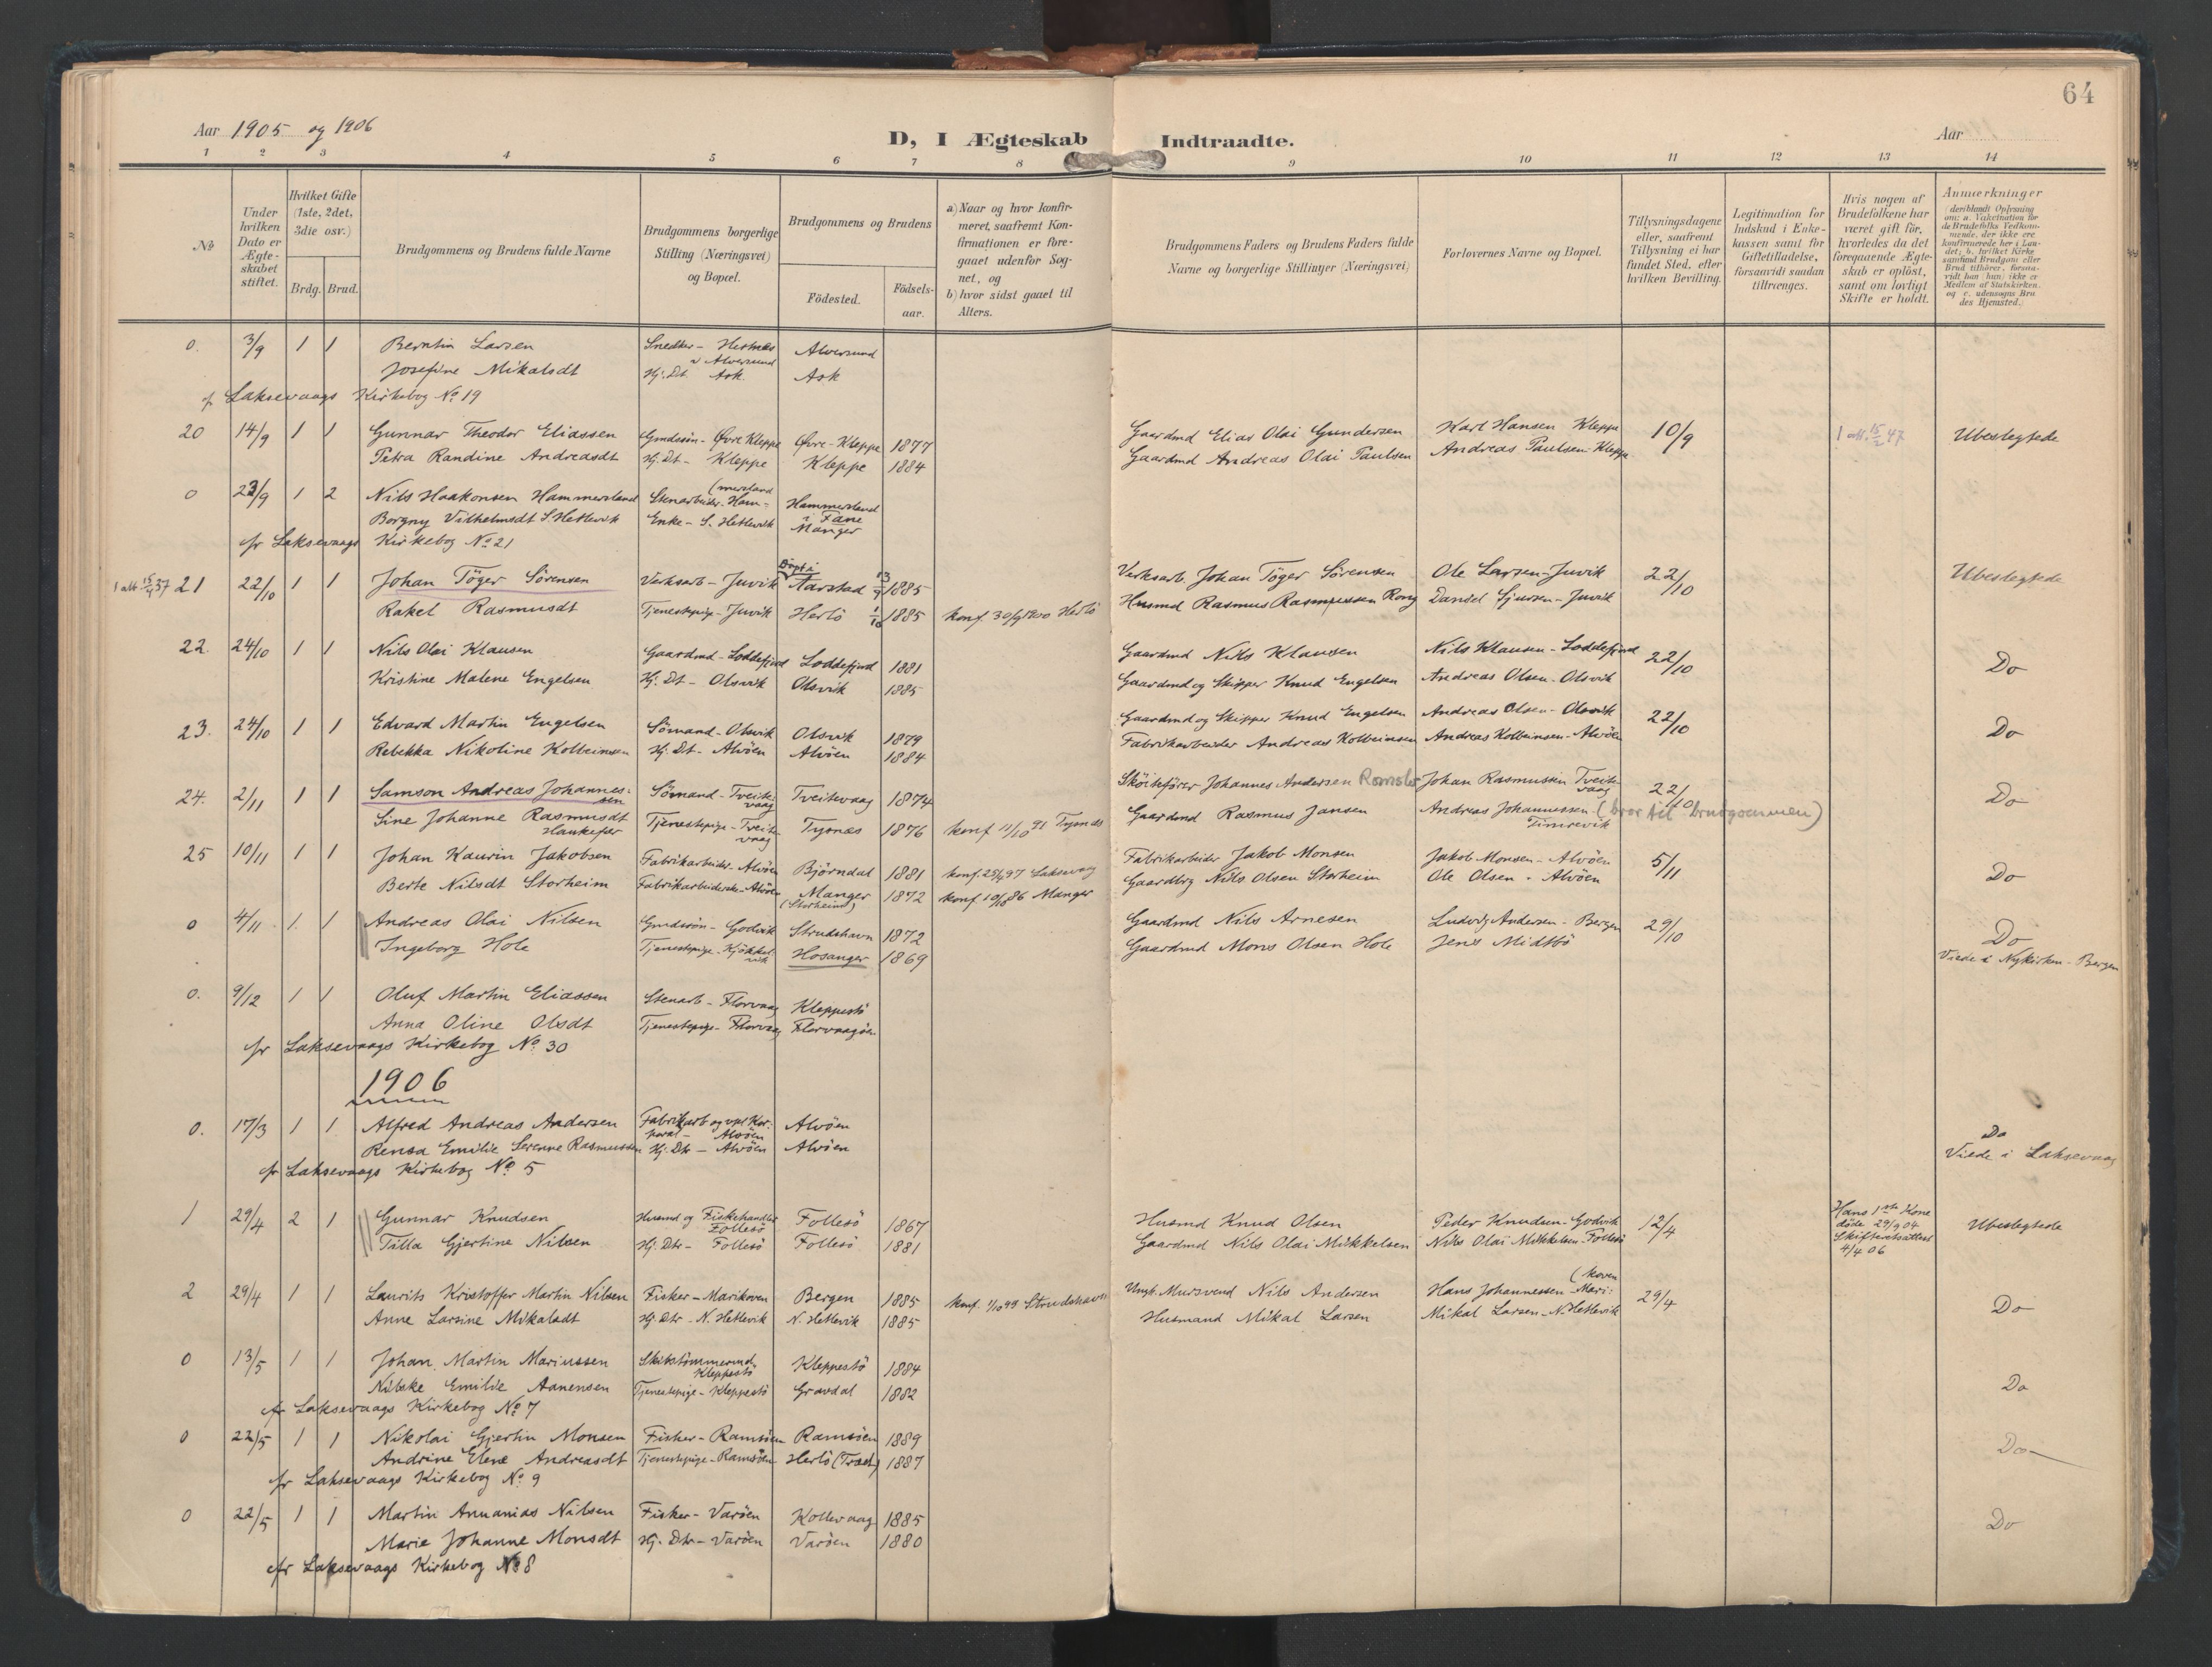 64
Aar 1905 og 1906
D, I Ægteskab Indtraadte.
Aar
1 2 3 4 5 6 7 8 9 10 11 12 13 14
No
Under hvilken Dato er Ægte-skabet stiftet.
Hvilket Gifte (1ste, 2det, 3die osv.)
Brdg. Brud.
Brudgommens og Brudens fulde Navne
Brudgommens borgerlige Stilling (Næringsvei) og Bopæl.
Brudgommens og Brudens
Födested.
Födsels-aar.
a) Naar og hvor konfir-meret, saafremt Kon-firmationen er fore-gaaet udenfor Sog-net, og
b) hvor sidst gaaet til Alters.
Brudgommens Faders og Brudens Faders fulde Navne og borgerlige Stillinger (Næringsvei)
Forlovernes Navne og Bopæl.
Tillysningsdagene eller, saafremt Tillysning ei har fundet Sted, efter hvilken Bevilling.
Legitimation for Indskud i Enke-kassen samt for Giftetilladelse, forsaavidt saadan tiltrænges.
Hvis nogen af Brudefolkene har været gift før, hvorledes da det foregaaende Ægte-skab er oplöst, samt om lovligt Skifte er holdt.
Anmærkninger (deriblandt Oplysning om: a. Vakcination for de Brudefolks Vedkom-mende, der ikke ere konfirmerede her i Lan-det; b. hvilket Kirke-samfund Brudgom eller Brud tilhörer, forsaa-vidt han (hun) ikke er Medlem af Statskirken. og c. udensogns Bru-des Hjemsted.)
0. 3/9 1 1 Berntin Larsen Snedker - Hestnes v Alversund Alversund
Josefine Mikalsdt Hj. Dt. Ask. Ask
cfr Laksevaags Kirkebog No 19
20 14/9 1 1 Gunnar Theodor Eliassen Gmdssön - Øvre Kleppe Øvre-Kleppe 1877 Gaardmd Elias Olai Gundersen Karl Hansen Kleppe 10/9 1 att. 15/2 47 Ubeslegtede
Petra Randine Andreasdt Hj. Dt - Kleppe Kleppe 1884 Gaardmd Andreas Olai Paulsen Andreas Paulsen-Kleppe
0 23/9 1 2 Nils Haakonsen Hammersland Stenarbeider. Ham- (mersland Hammersland i Fane
Borgny Vilhelmsdt S Hetlevik Enke - S. Hetlevik Manger
cfr Laksevaags Kirkebog No 21
1 att 15/4 37 21 22/10 1 1 Johan Töger Sörensen Verksarb - Juvik Döpt i Aarstad 13/7 1885 Verksarb. Johan Töger Sörensen Ole Larsen-Juvik 22/10 Ubeslegtede
Rakel Rasmusdt Tjenestepige - Juvik Herlö 1/10 1885 konf. 30/9 1900 Herlö Husmd Rasmus Rasmussen Rong Daniel Sjursen - Juvik
22. 24/10 1 1 Nils Olai Klausen Gaardmd - Loddefjord Loddefjord 1881 Gaardmd Nils Klausen Nils Klausen - Loddefjord 22/10 Do
Kristine Malene Engelsen Hj. Dt - Olsvik Olsvik 1885 Gaardmd og Skipper Knud Engelsen Andreas Olsen - Olsvik
23. 24/10 1 1 Edvard Martin Engelsen Sömand - Olsvik Olsvik 1879 Gaardmd og Skipper Knud Engelsen Andreas Olsen - Olsvik 22/10 Do
Rebekka Nikoline Kolbeinsen Hj. Dt - Alvöen Alvöen 1884 Fabrikarbeider Andreas Kolbeinsen Andreas Kolbeinsen - Alvöen
24. 2/11 1 1 Samson Andreas Johannes-sen Sömand - Tveite-vaag Tveitevaag 1874 Sköiteförer Johannes Andersen Romslo Johan Rasmussen Tveite-vaag 22/10 Do
Sine Johanne Rasmusdt Haukefær Tjenestepige - Tveite-vaag Tysnes 1876 konf 11/10 91 Tysnes Gaardmd Rasmus Jansen Andreas Johannessen (bror til brudgommen)
25 10/11 1 1 Johan Kaurin Jakobsen Fabrikarbeider - Alvöen Björndal 1881 konf. 25/4 97 Laksevaag Fabrikarbeider Jakob Monsen Jakob Monsen - Alvöen 5/11 Do
Berte Nilsdt Storheim Fabrikarbeiderske - Alvöen Manger (Storheim) 1872 konf 10/10 86 Manger Gaardbrg Nils Olsen Storheim Ole Olsen - Alvöen
0 4/11 1 1 Andreas Olai Nilsen Gmdssön - Godvik Strudshavn 1872 Gaardmd Nils Arnesen Ludvig Andersen - Bergen 29/10 Do
Ingeborg Hole Tjenestepige - Kjökkel-vik Hosanger 1869 Gaardmd Mons Olsen Hole Jens Midtbö Viede i Nykirken - Bergen
0. 9/12 1 1 Oluf Martin Eliassen Stenarb - Florvaag Kleppestö
Anna Oline Olsdt Tjenestepige - Florvaag Florvaagöen
cfr Laksevaags Kirkebog No. 30
1906
0. 17/3 1 1 Alfred Andreas Andersen Fabrikarb og vpl Kor-poral - Alvöen Alvöen Do
Rensa Emilie Serenne Rasmussen Hj. Dtr - Alvöen Alvöen Viede i Laksevaag
cfr Laksevaags Kirkebog No. 5
1 29/4 2 1 Gunnar Knudsen Husmd og Fiskehandler Follesö Follesö 1867 Husmd Knud Olsen Peder Knudsen - Godvik 12/4 Hans 1ste Kone döde 29/9 04 Skifteretsattest 4/4 06 Ubeslegtede
Tilla Gjertine Nilsen Hj. Dtr - Follesö Follesö 1881 Gaardmd Nils Olai Mikkelsen Nils Olai Mikkelsen - Follesö
2 29/4 1 1 Laurits Kristoffer Martin Nilsen Fisker - Marikoven Bergen 1885 konf. 1/10 99 Strudshavn Ungk. Mursvend Nils Andersen Hans Johannessen - Mari- (koven 29/4 Do
Anne Larsine Mikalsdt Hj. Dtr - N. Hetlevik N. Hetlevik 1885 Husmand Mikal Larsen Mikal Larsen - N. Hetlevik
0 13/5 1 1 Johan Martin Mariussen Skibstömmermd Kleppestö Kleppestö 1884 Do
Nilske Emilie Aanensen Tjenestepige - Kleppestö Gravdal 1882
cfr Laksevaags Kirkebog No. 7
0 22/5 1 1 Nikolai Gjertin Monsen Fisker - Ramsöen Ramsöen 1889 Do
Andrine Elene Andreasdt Tjenestepige - Ramsöen Herlö (Træet) 1887
cfr Laksevaags Kirkebog No. 9
0 22/5 1 1 Martin Annanias Nilsen Fisker - Varöen Kollevaag 1885 Do
Marie Johanne Monsdt Hj. Dtr - Varöen Varöen 1880
cfr Laksevaags Kirkebog No 8